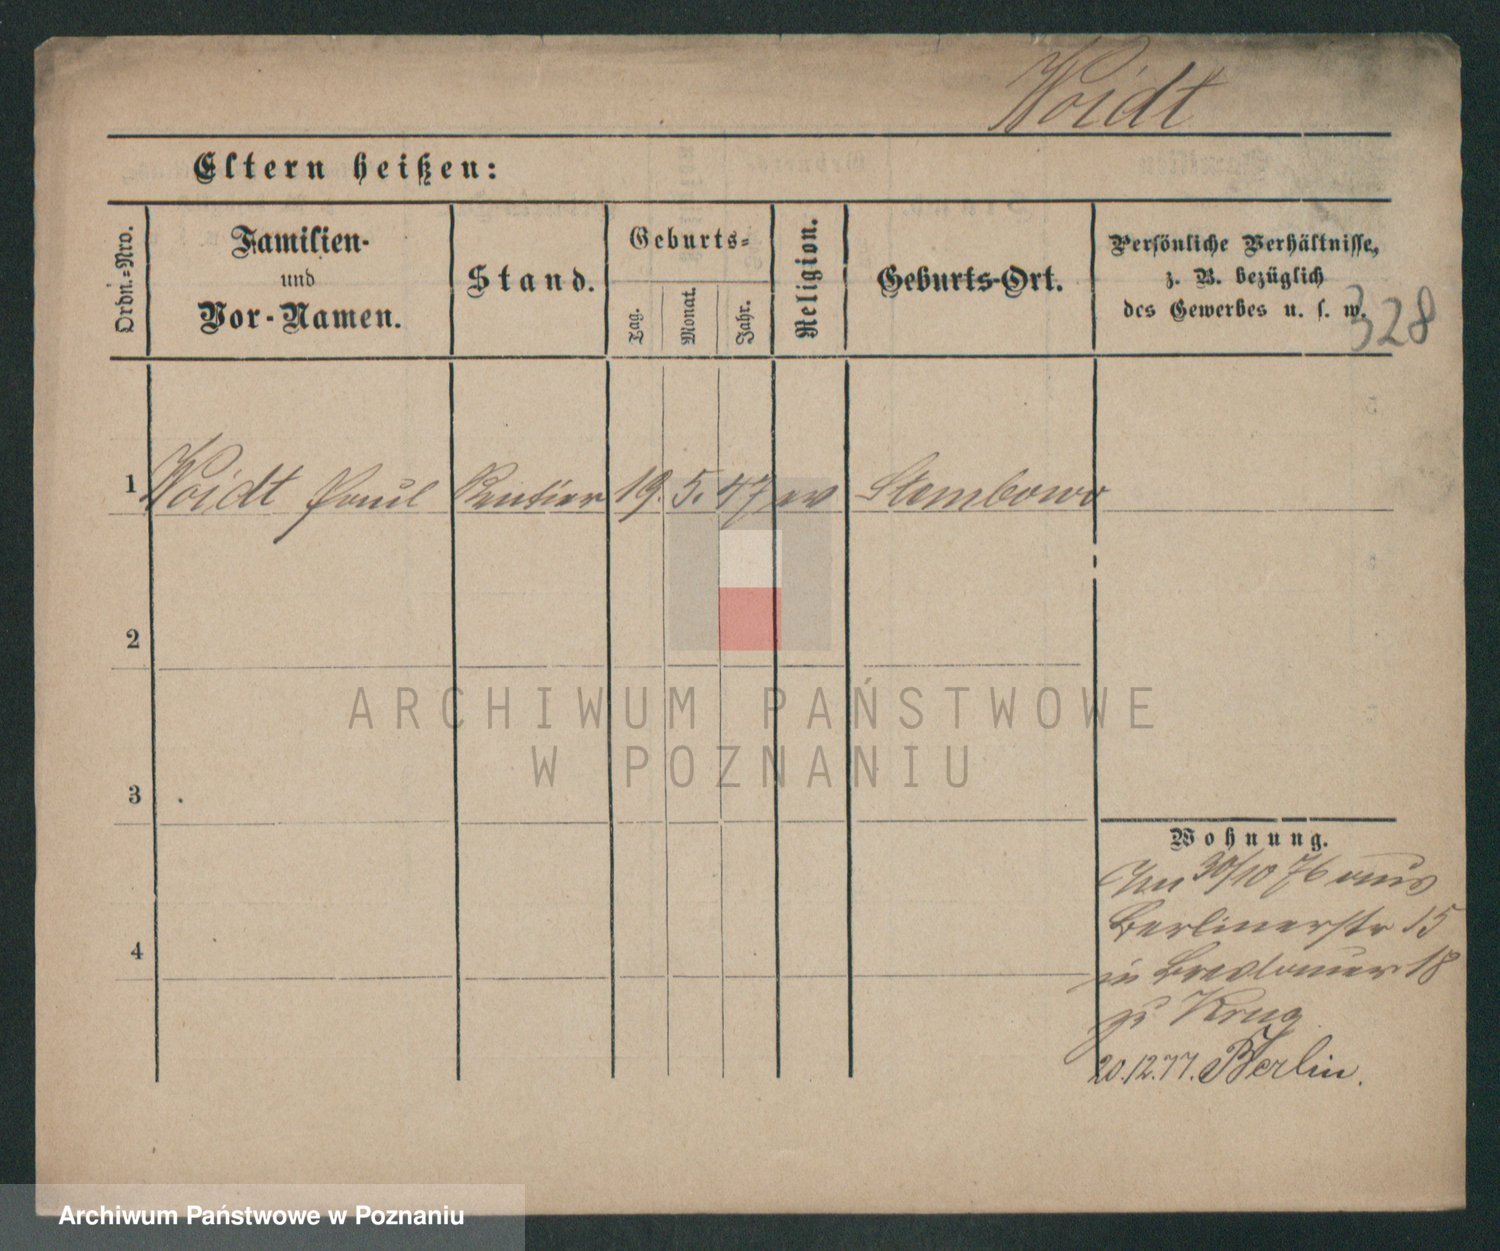 Woidt
Eltern heißen:
Ordn.-Nro.
Familien-
und
Vor-Namen.
Stand.
Geburts-
Tag.
Monat.
Jahr.
Religion.
Geburts-Ort.
Persönliche Verhältnisse,
z. B. bezüglich
des Gewerbes u. s. w.
328
1 Woidt Paul Rentier 19. 5. 47 ev
2
3
4
Wohnung.
30/10 76 aus
Berlinerstr 15
in Breslauer 18
zu Krug
20.12.77. Berlin.
ARCHIWUM PAŃSTWOWE
W POZNANIU
Archiwum Państwowe w Poznaniu